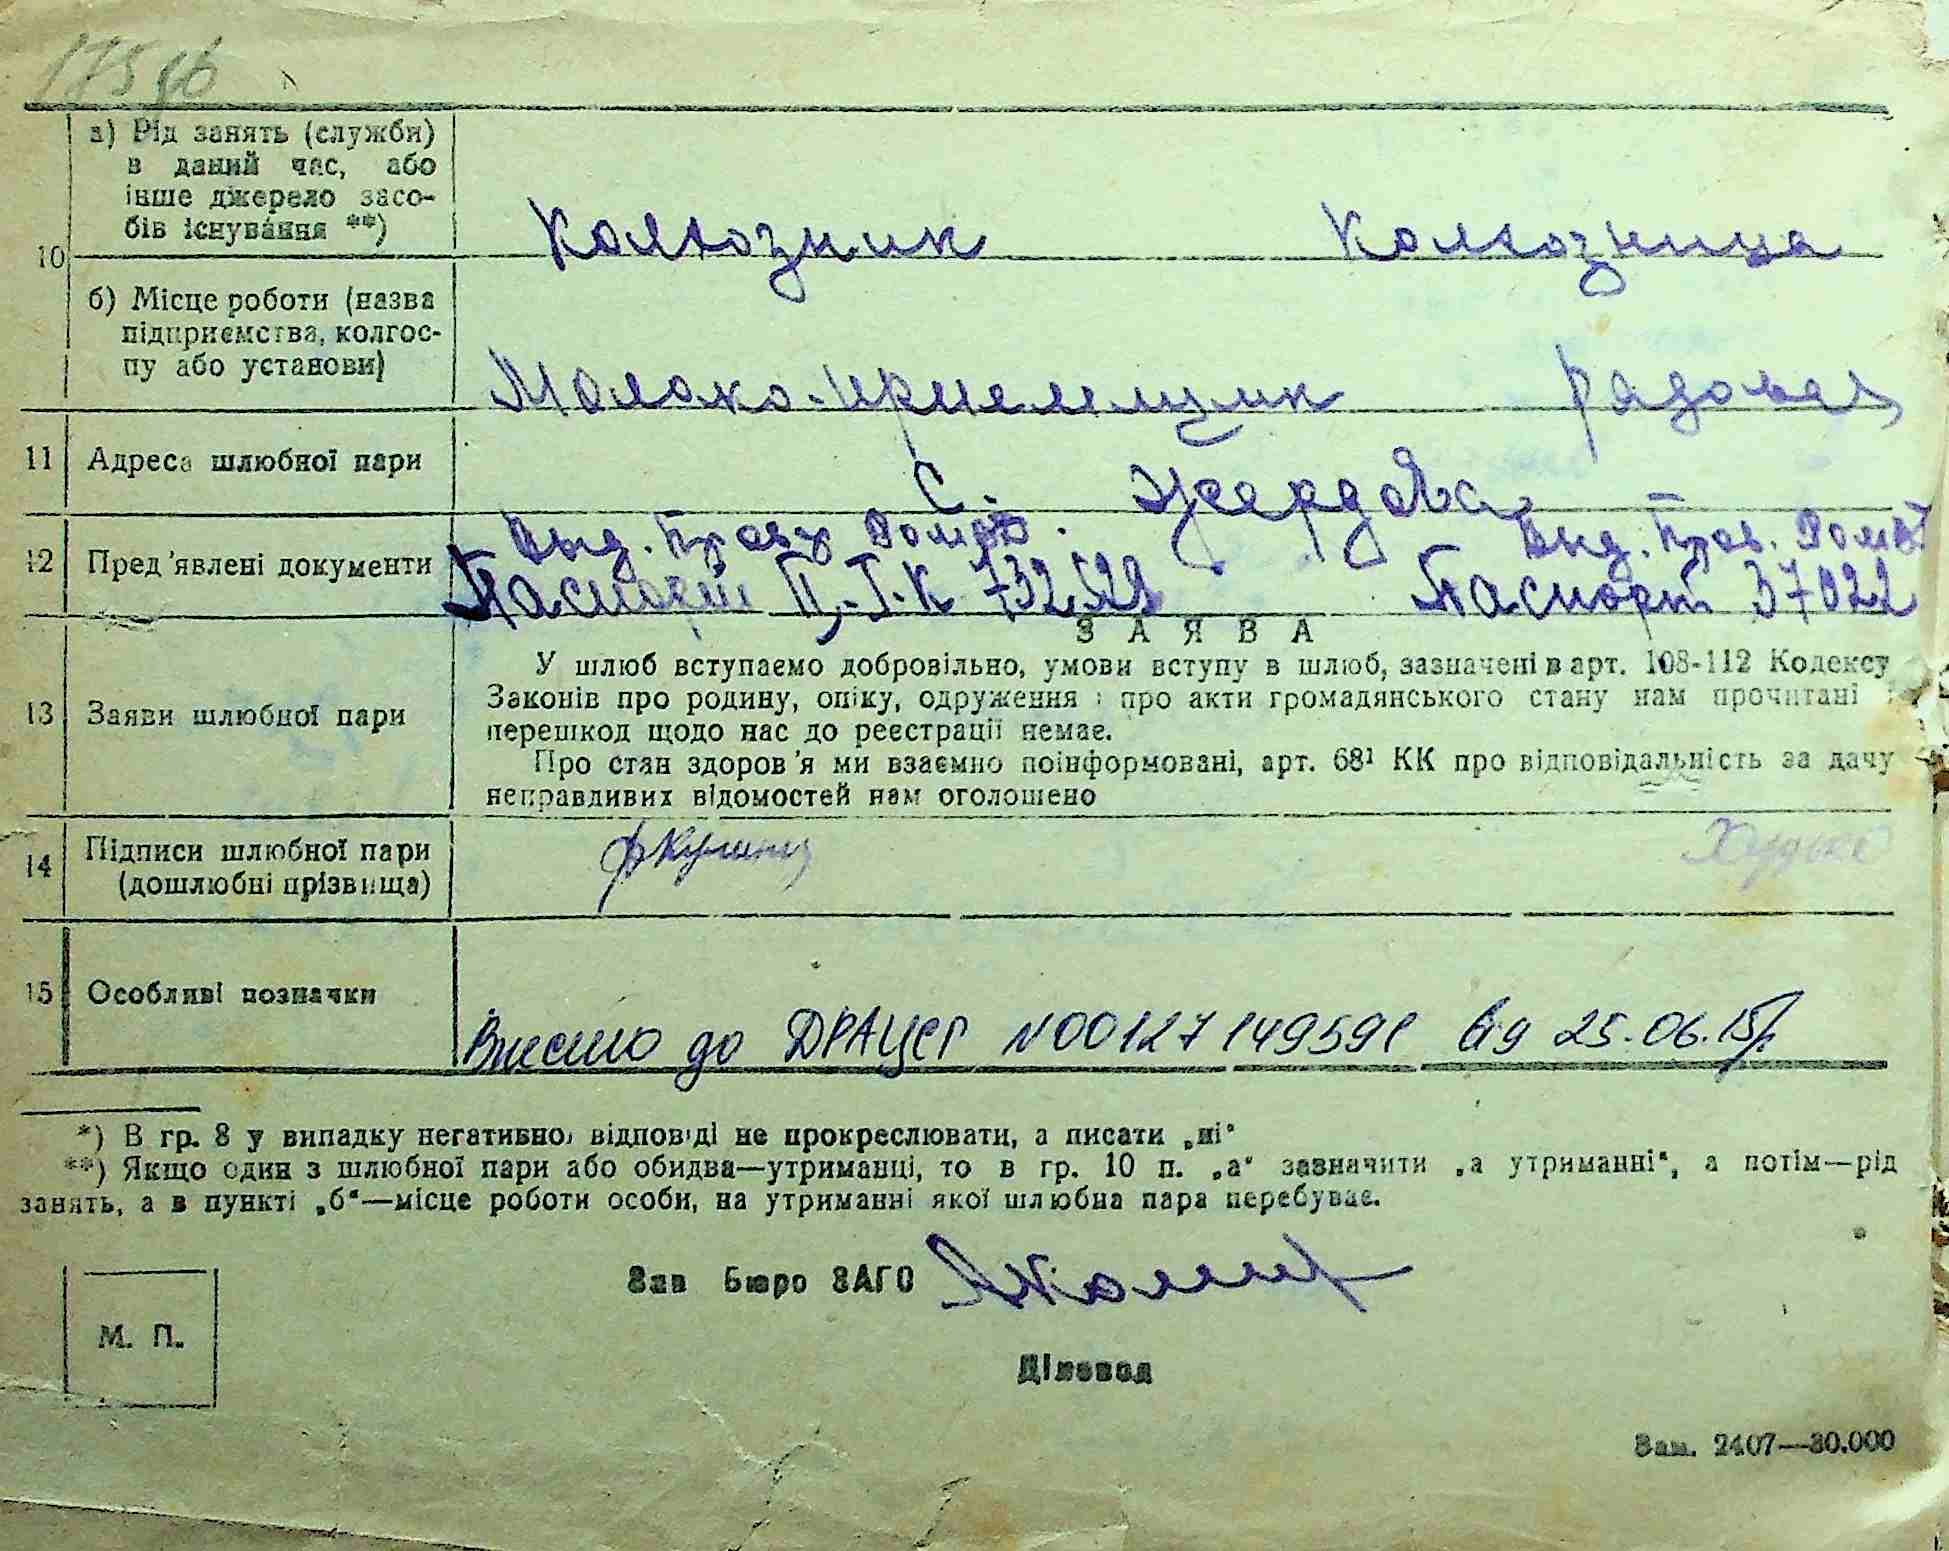 175 зв
10
а) Рід занять (служби)
в даний час, або
інше джерело засо-
бів існування **)
Колхозник Колхозница
б) Місце роботи (назва
підприємства, колгос-
пу або установи)
Молоко-приемщик рядовая
11 Адреса шлюбної пари
с. Жердова
12 Пред'явлені документи
Выд. Выд.
Паспорт Паспорт 37022
13 Заяви шлюбної пари
ЗАЯВА
У шлюб вступаємо добровільно, умови вступу в шлюб, зазначені в арт. 108-112 Кодексу
Законів про родину, опіку, одруження і про акти громадянського стану нам прочитані і
перешкод щодо нас до реєстрації немає.
Про стан здоров'я ми взаємно поінформовані, арт. 68¹ КК про відповідальність за дачу
неправдивих відомостей нам оголошено
14 Підписи шлюбної пари
(дошлюбні прізвища)
15 Особливі позначки
Внесено до ДРАЦСГ N00127149591 від 25.06.15р
*) В гр. 8 у випадку негативної відповіді не прокреслювати, а писати „ні“
**) Якщо один з шлюбної пари або обидва—утриманці, то в гр. 10 п. „а“ зазначити „а утриманні“, а потім—рід
занять, а в пункті „б“—місце роботи особи, на утриманні якої шлюбна пара перебуває.
Зав Бюро ЗАГС
М. П.
Діловод
Зам. 2407—30.000